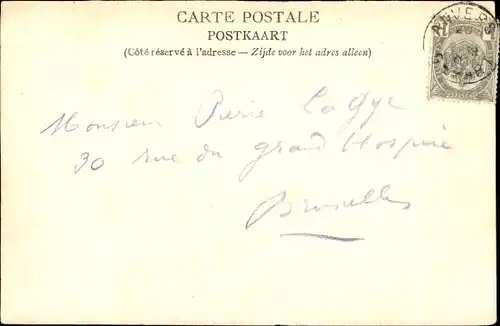 CARTE POSTALE
POSTKAART
(Côté réservé à l'adresse — Zijde voor het adres alleen)
ANVERS
1
Monsieur Pierre Lagye
30 rue du grand Hospice
Bruxelles